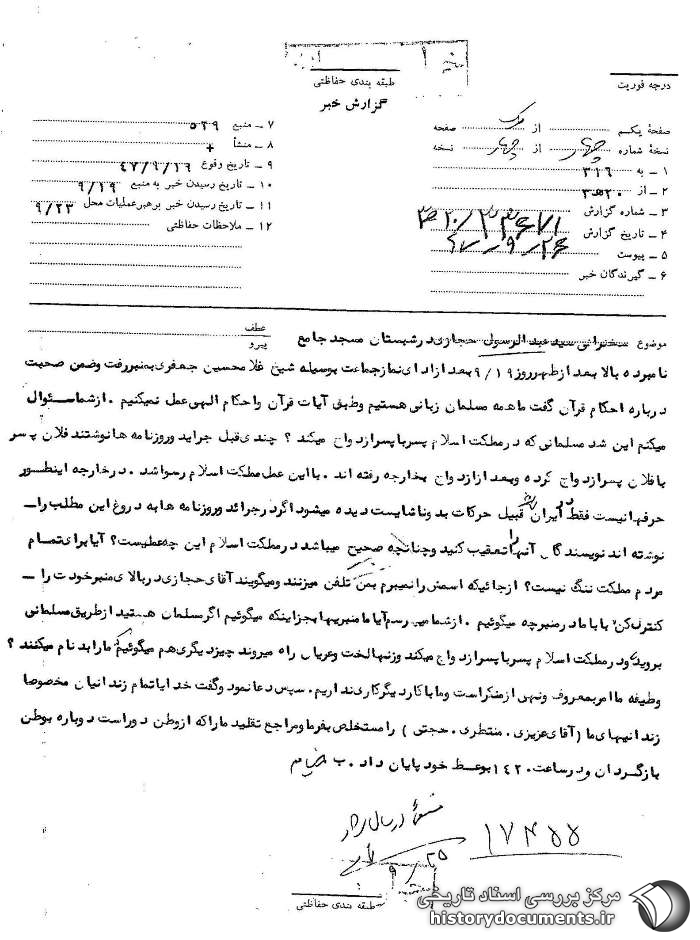 درجه فوریت
طبقه بندی حفاظتی
گزارش خبر
صفحهٔ یکم از یک صفحه
نسخهٔ شماره چهار از چهار نسخه
۱ ــ به ۳۱۶
۲ ــ از ۲۰ه۳
۳ ــ شماره گزارش
۴ ــ تاریخ گزارش ۴۷/۹/۲۶
۵ ــ پیوست
۶ ــ گیرندگان خبر
۷ ــ منبع ۵۲۹
۸ ــ منشأ +
۹ ــ تاریخ وقوع ۴۷/۹/۱۹
۱۰ ــ تاریخ رسیدن خبر به منبع ۹/۱۹
۱۱ ــ تاریخ رسیدن خبر برهبر عملیات محل ۹/۲۳
۱۲ ــ ملاحظات حفاظتی
موضوع سخنرانی سید عبدالرسول حجازی در شبستان مسجد جامع
عطف
پیرو
نامبرده بالا بعد از ظهر روز ۹/۱۹ بعد از ادای نماز جماعت بوسیله شیخ غلامحسین جعفری بمنبر رفت و ضمن صحبت
درباره احکام قرآن گفت ما همه مسلمان زبانی هستیم و طبق آیات قرآن و احکام الهی عمل نمیکنیم . از شما سئوال
میکنم این شد مسلمانی که در مملکت اسلام پسر با پسر ازدواج میکند ؟ چندی قبل جراید و روزنامه ها نوشتند فلان پسر
با فلان پسر ازدواج کرده و بعد از ازدواج بخارجه رفته اند . با این عمل مملکت اسلام رسوا شد . در خارجه اینطور
حرفها نیست فقط در ایران قبیل حرکات بد و ناشایست دیده میشود اگر در جرائد و روزنامه ها به دروغ این مطلب را ــ
نوشته اند نویسندگان آنها را تعقیب کنید و چنانچه صحیح میباشد در مملکت اسلام این چه عملیست؟ آیا برای تمام
مردم مملکت ننگ نیست؟ از جائیکه اسمش را نمیبرم بمن تلفن میزنند و میگویند آقای حجازی در بالای منبر خودت را ــ
کنترل کن بابا مادر منبر چه میگوئیم . از شما میپرسم آیا ما منبریها بجز اینکه میگوئیم اگر مسلمان هستید از طریق مسلمانی
بروید و در مملکت اسلام پسر با پسر ازدواج میکند و زنها لخت و عریان راه میروند چیز دیگری هم میگوئیم که ما را بدنام میکنند ؟
وظیفه ما امر بمعروف و نهی از منکر است و ما با کار دیگر کاری نداریم . سپس دعا نمود و گفت خدایا تمام زندانیان مخصوصا
زندانیهای ما ( آقای عزیزی . منتظری . حجتی ) را مستخلص بفرما و مراجع تقلید ما را که از وطن دور است دوباره بوطن
بازگردان و در ساعت ۱۴۲۰ بوعظ خود پایان داد . ب
۱۷۴۵۵
۹/۲۵
طبقه بندی حفاظتی
مرکز بررسی اسناد تاریخی
historydocuments.ir